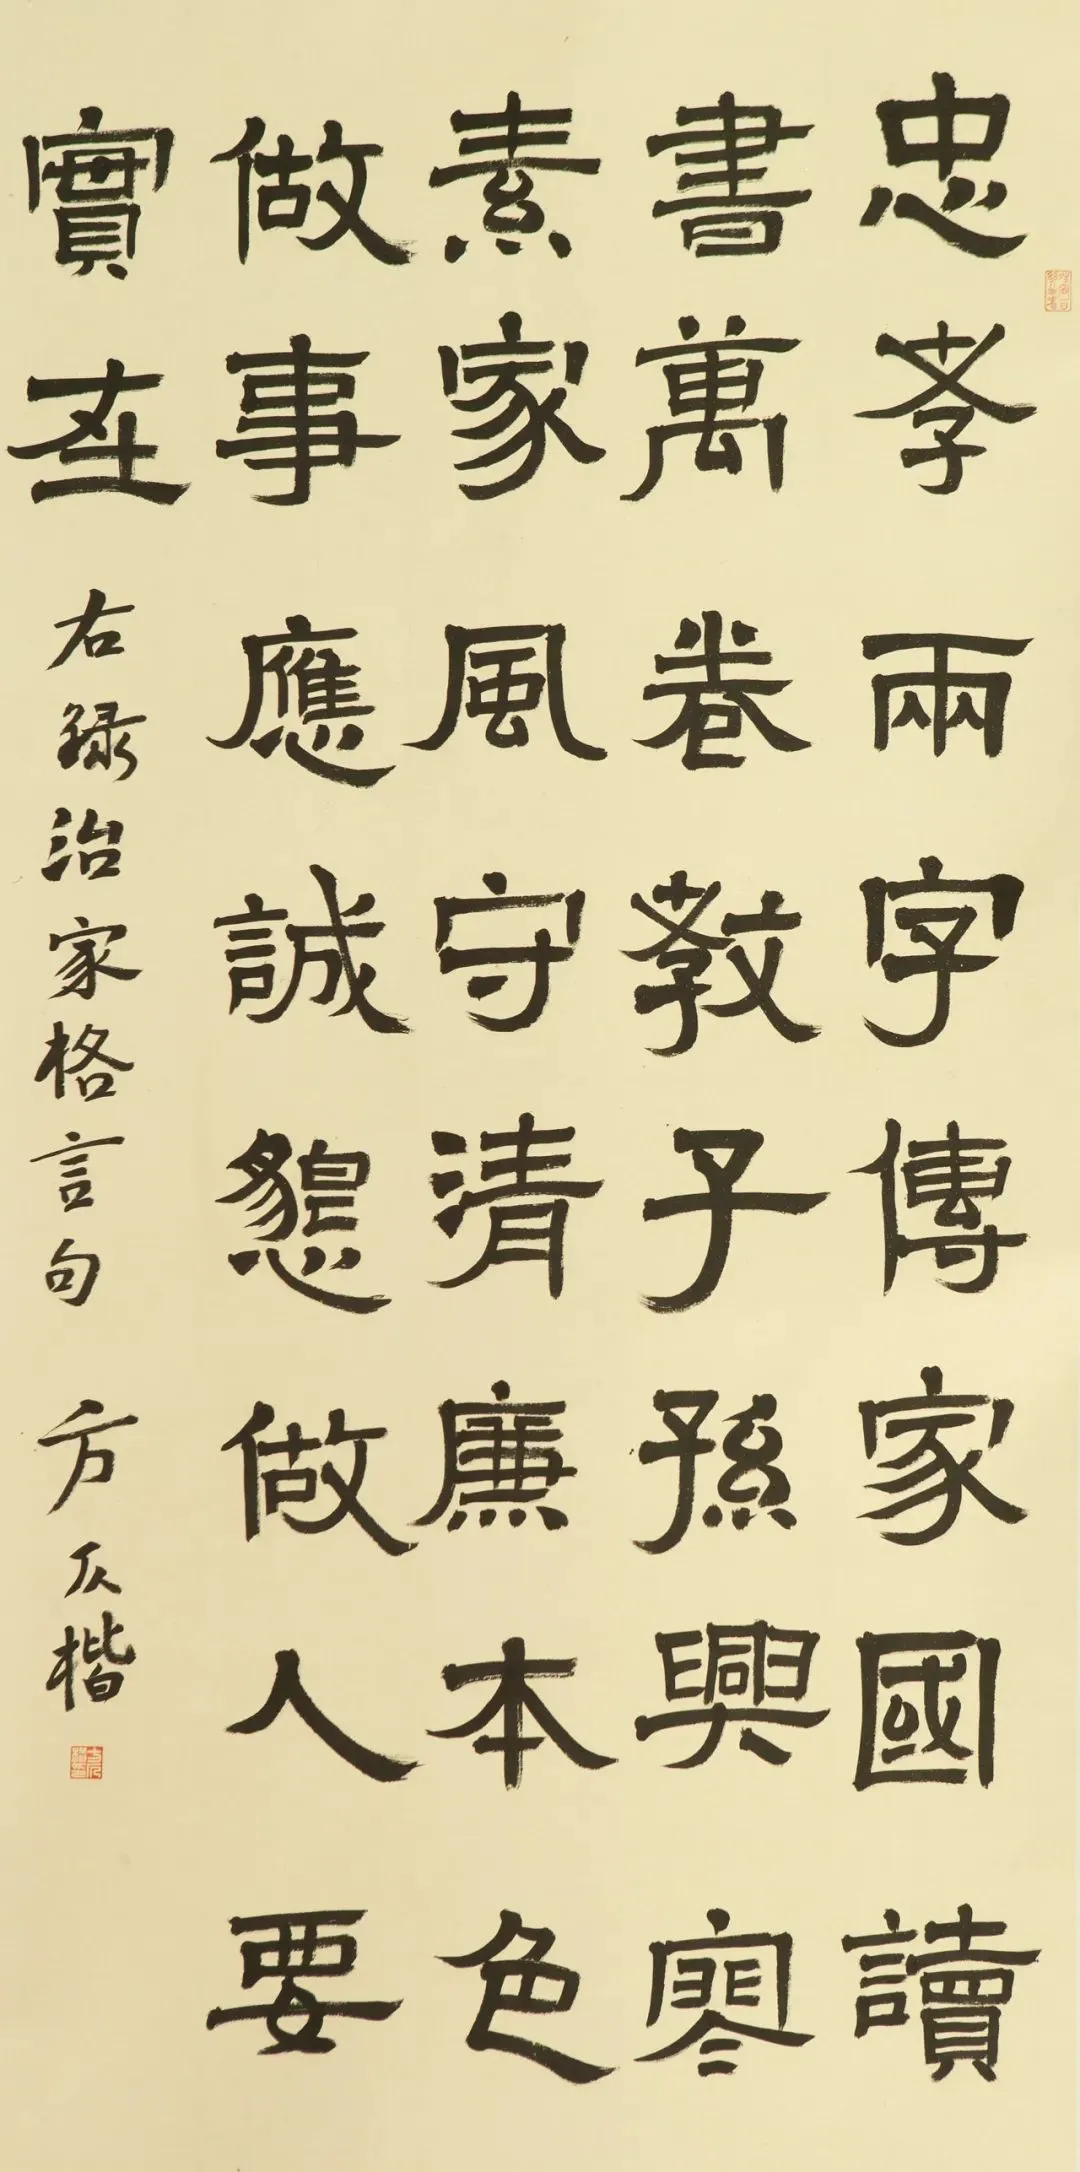 忠孝兩字傳家國讀
書萬卷教子孫興寒
素家風守清廉本色
做事應誠懇做人要
實在 右録治家格言句 方仄楷